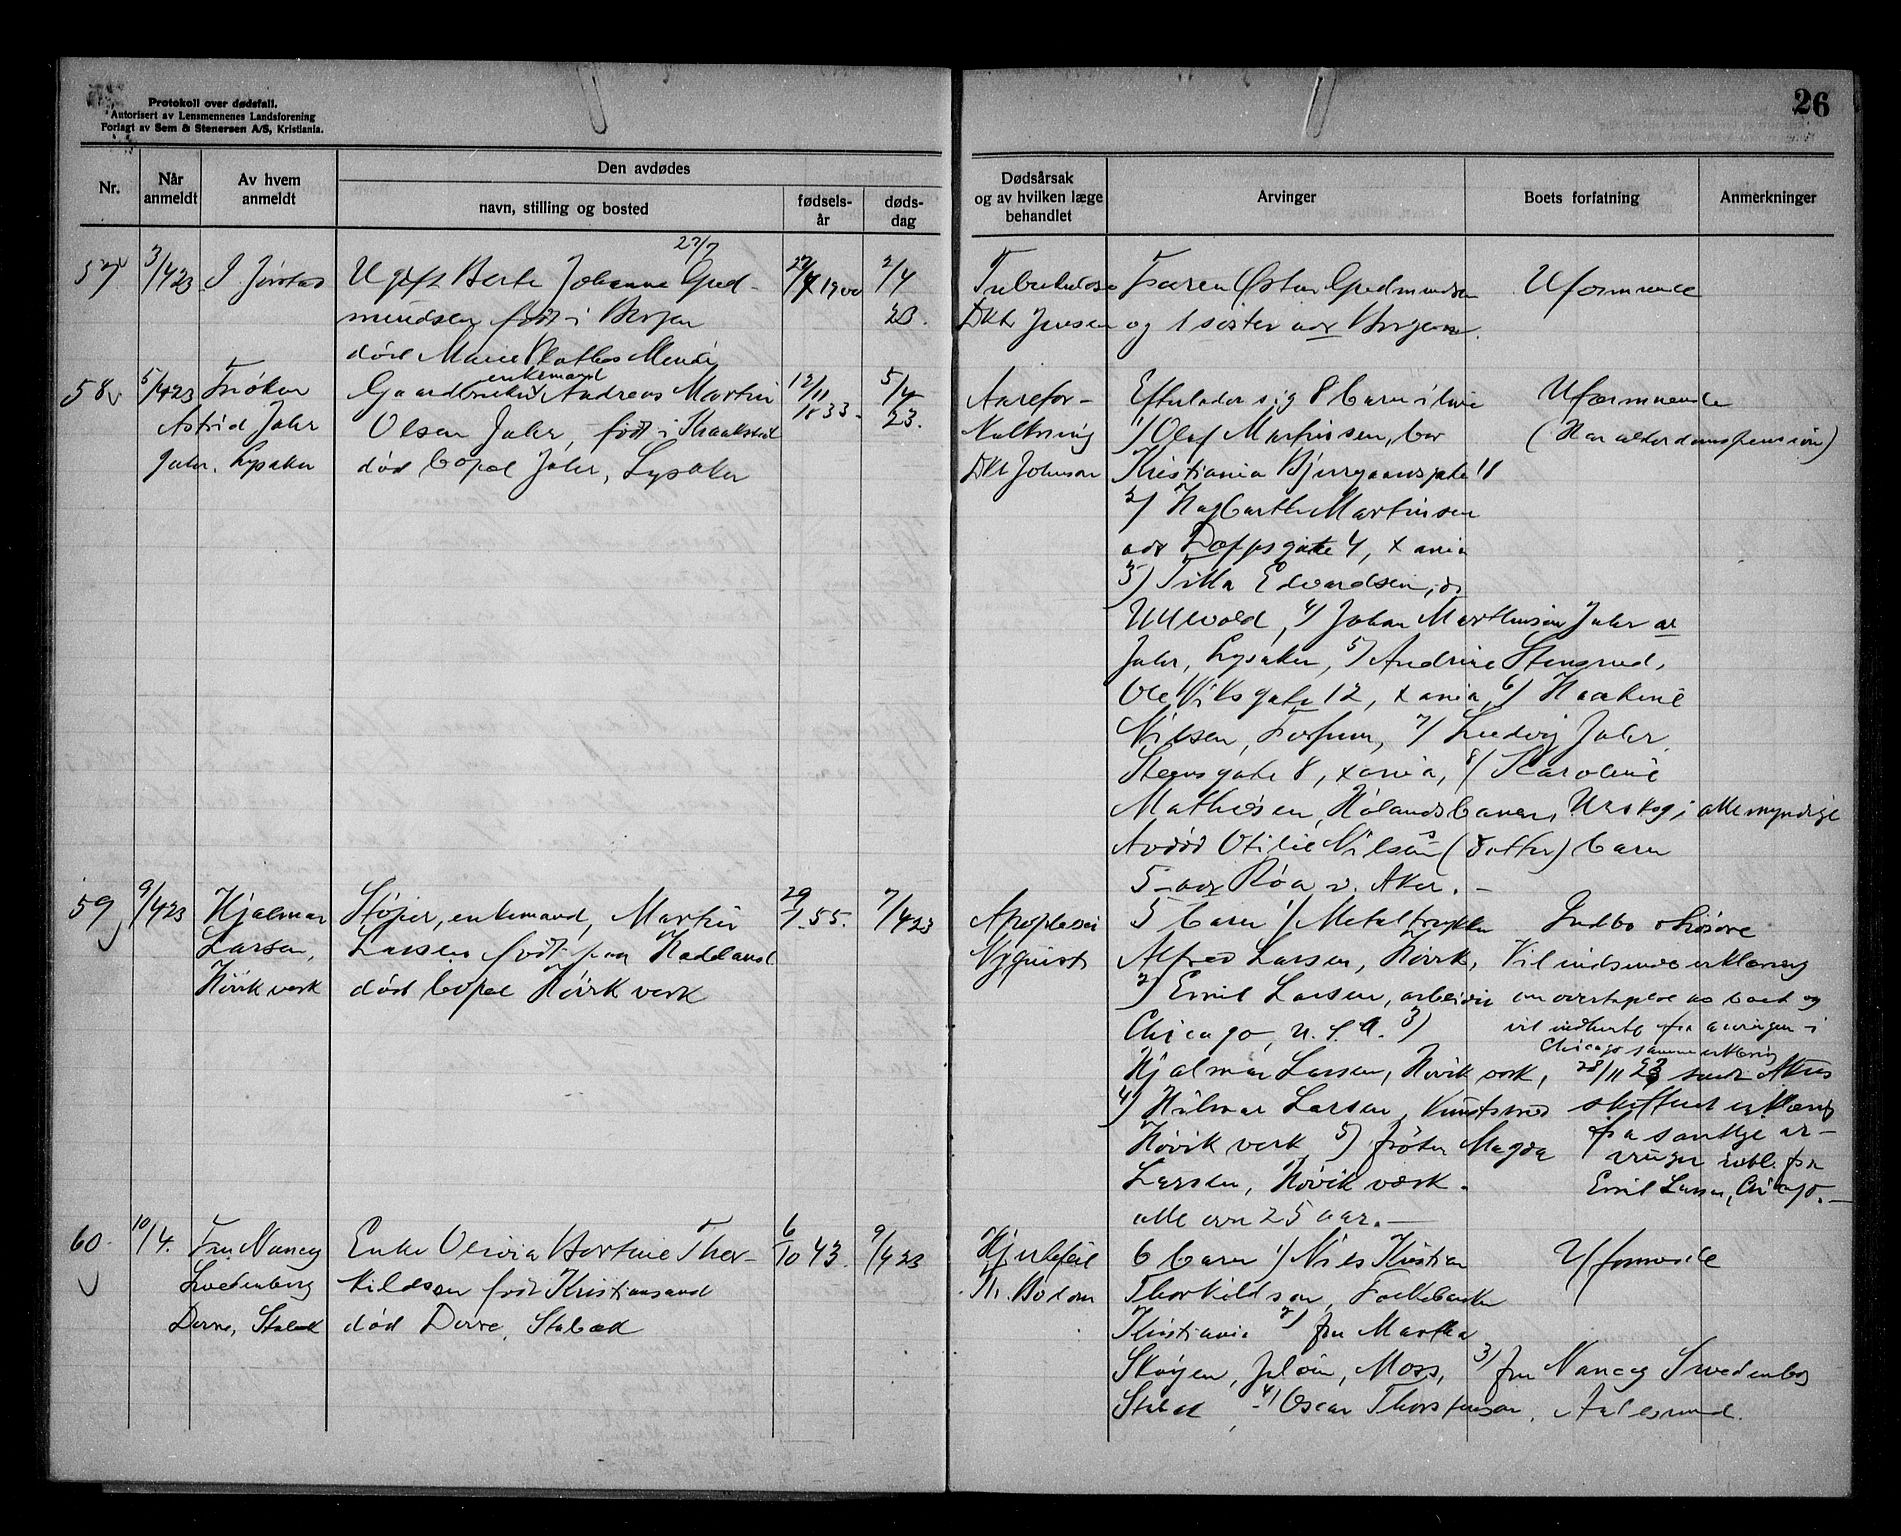 Protokoll over dødsfall.
Autorisert av Lensmennenes Landsforening
Forlagt av Sem & Stenersen A/S, Kristiania.
Nr.
Når anmeldt
Av hvem anmeldt
Den avdødes
navn, stilling og bosted
fødsels-år
døds-dag
57
3/4 23
Ugift Berte Johanne Gud-
27/7
mundsen født i Bergen
død Marie Plathes Minde
27/7 1900
2/4
23.
58
5/4 23
Frøken
Astrid Jahr
Jahr, Lysaker
enkemand
Gaardbruker Andreas Martin
Olsen Jahr, født i Kraakstad
død bopel Jahr, Lysaker
12/11
1833.
5/4
23.
59
9/4 23
Hjalmar
Larsen,
Høvik verk
Støper, enkemand, Martin
Larsen født paa Hadeland
død bopel Høvik verk
29/1. 55.
7/4 23
60.
10/4.
Fru Nancy
Svedenborg
Stabæk
Enke Olivia Bertine Thor-
kildsen født Kristiansand
død Stabæk
6/10 43.
9/4 23
26
Dødsårsak
og av hvilken læge
behandlet
Arvinger
Boets forfatning
Anmerkninger
Tuberkulose
Dkt Jensen
Faren Østen Gudmundsen
og 1 søster adr Bergen.
Uformuende
Aarefor-
kalkning
Dkt Johnson
Efterlader sig 8 barn i live
1/ Olaf Martinsen, bor
Kristiania
2/ Hagbarth Martinsen
adr Doppsgate 4, xania
3) Tilla Edvardsen,
Ullevold, 4/ Johan Marthinsen Jahr
Jahr, Lysaker, 5/ Andrine Stensrud,
Ole Viksgate 12, xania, 6/ Haakine
Nilsen, 7/ Ludvig Jahr
Stensgate 8, xania, 8/ Karoline
Mathisen, Hølandsbanen, Urskog, alle myndige
Avdød Otilie Nilsens (datter) barn
5 adr Røa v. Aker. -
Uformuende
(Har alderdomspension)
Apoplexi
Nyquist
5 barn 1/ Metaltrykker
Alfred Larsen, Høvik,
2) Emil Larsen, arbeider
Chicago, U.S.A. 3)
Hjalmar Larsen, Høvik verk,
4) Hilmar Larsen, Kunstsmed
Høvik verk 5) frøken Magda
Larsen, Høvik værk.
alle over 25 aar. -
Indbo & løsøre
Vil indsende erklæring
om overtagelse av boet og
vil indhente fra arvingen i
Chicago samme erklæring
28/11 23 sendt Akers
skifteret erklæring
fra samtlige ar-
vinger fra
Emil Larsen, Chicago. -
Hjertefeil
6 barn 1/ Nils Kristian
Thorkildsen, Folkebanken
Kristiania 2) fru Martha
Skøyen, Jeløen, Moss, 3) fru Nancy Svedenborg
Stabæk, 4) Oscar Thorstensen, Aalesund.
Uformuende